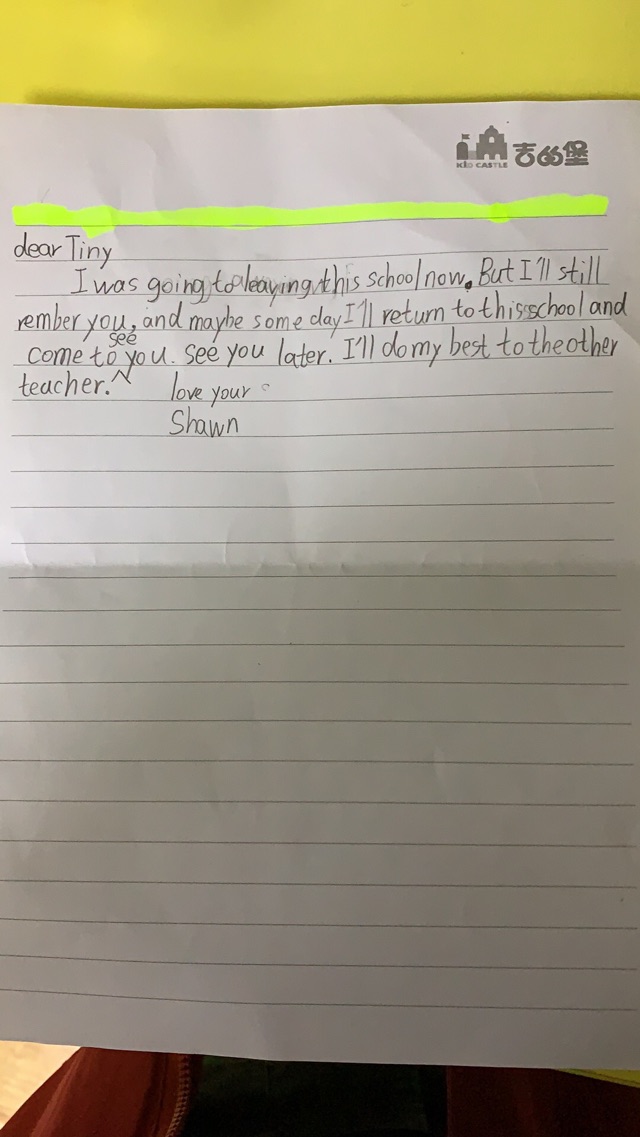 KID CASTLE 吉的堡
dear Tiny
I was going to leaving this school now. But I'll still
rember you, and maybe some day I'll return to this school and
come to see you. see you later. I'll do my best to the other
teacher.
love your
Shawn